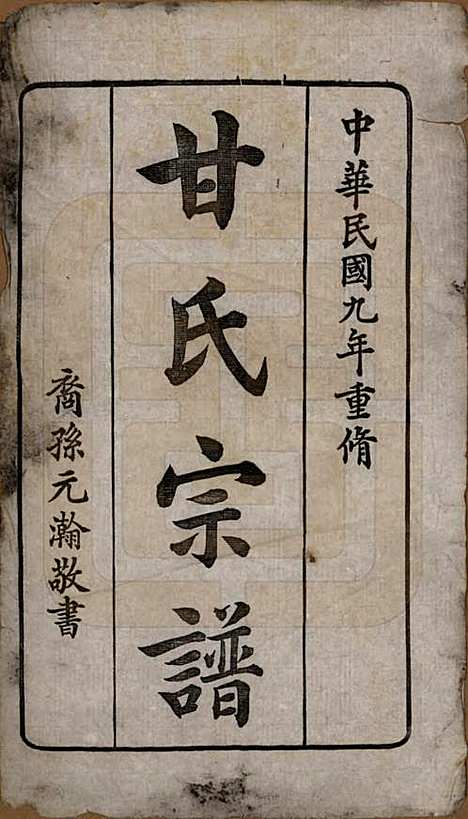 中華民國九年重脩
甘氏宗譜
裔孫元瀚敬書